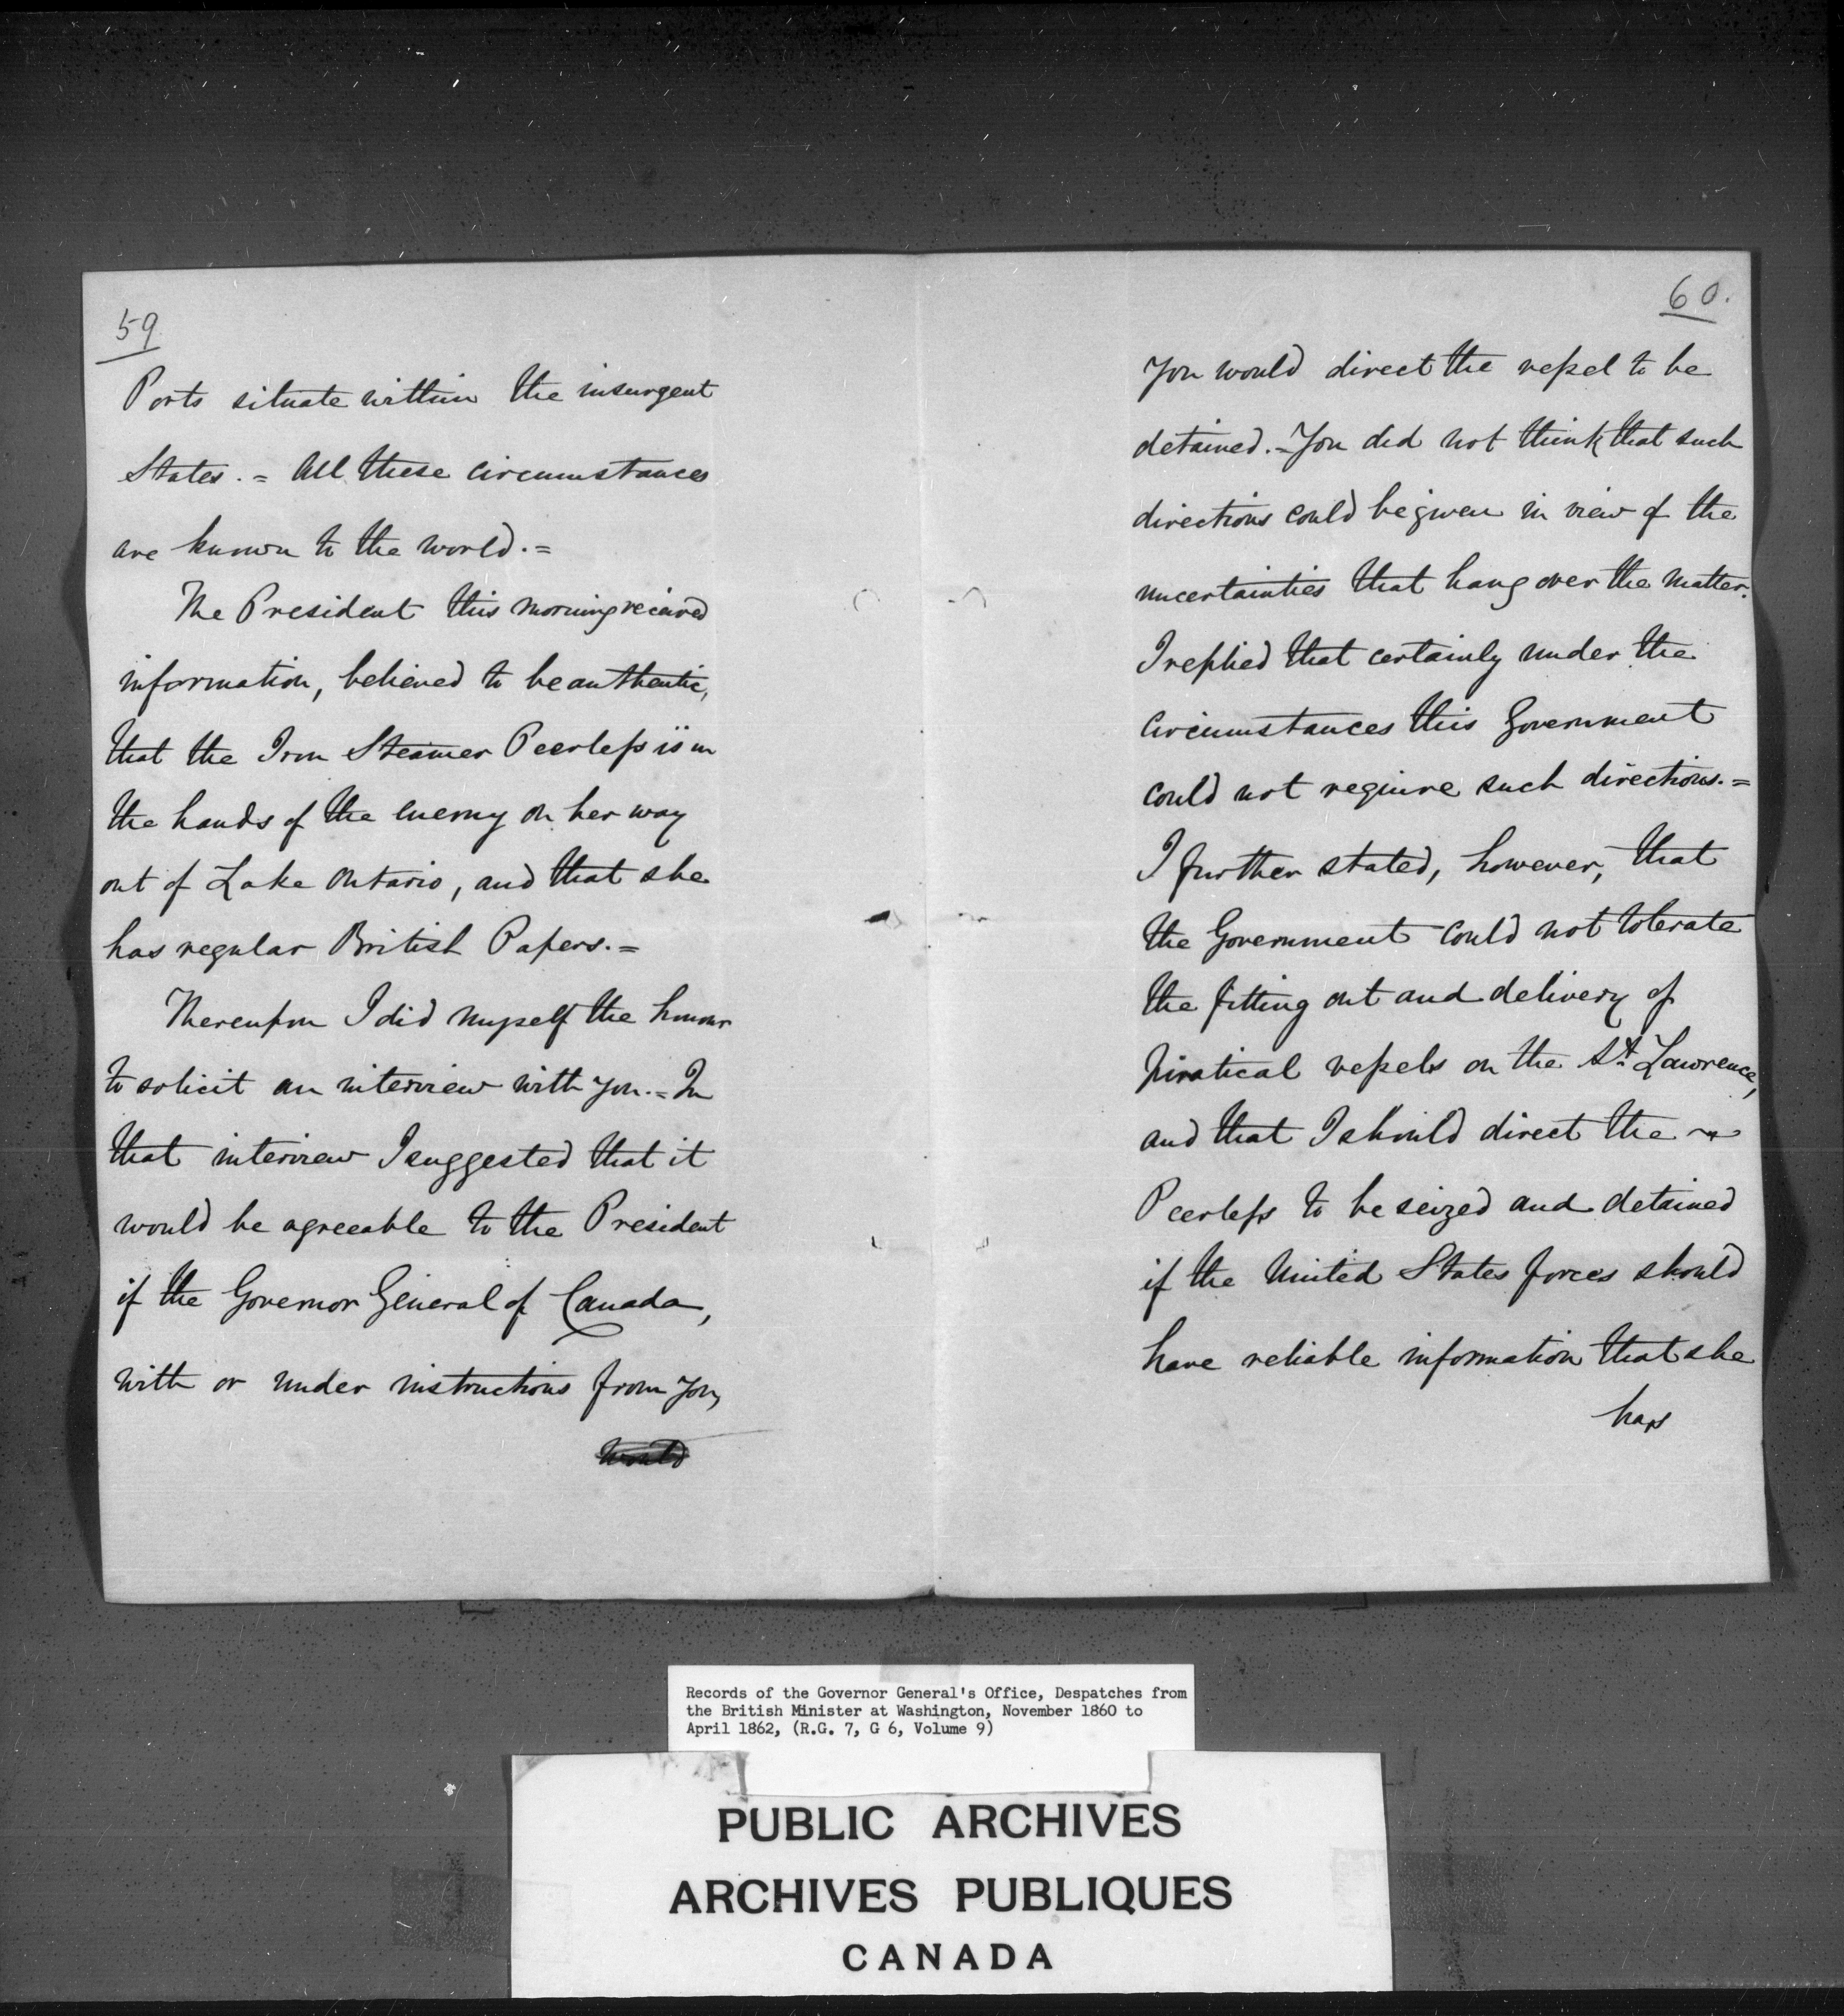 59
Ports situate within the insurgent
States. = All these circumstances
are known to the world. =
The President this morning received
information, believed to be authentic,
that the Iron Steamer Peerless is in
the hands of the enemy on her way
out of Lake Ontario, and that she
has regular British Papers. =
Thereupon I did myself the honour
to solicit an interview with you. = In
that interview I suggested that it
would be agreeable to the President
if the Governor General of Canada,
with or under instructions from you,
would
60.
You would direct the vessel to be
detained. = You did not think that such
directions could be given in view of the
uncertainties that hang over the matter.
I replied that certainly under the
circumstances this Government
could not require such directions. =
I further stated, however, that
the Government could not tolerate
the fitting out and delivery of
piratical vessels on the St. Lawrence,
and that I should direct the
Peerless to be seized and detained
if the United States forces should
have reliable information that she
has
Records of the Governor General's Office, Despatches from
the British Minister at Washington, November 1860 to
April 1862, (R.G. 7, G 6, Volume 9)
PUBLIC ARCHIVES
ARCHIVES PUBLIQUES
CANADA